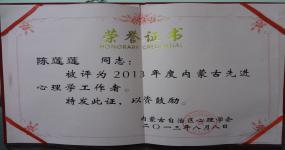 荣誉证书
HONORARY CREDENTIAL
陈莲莲 同志：
被评为2013年度内蒙古先进
心理学工作者。
特发此证，以资鼓励。
内蒙古自治区心理学会
二〇一三年八月八日